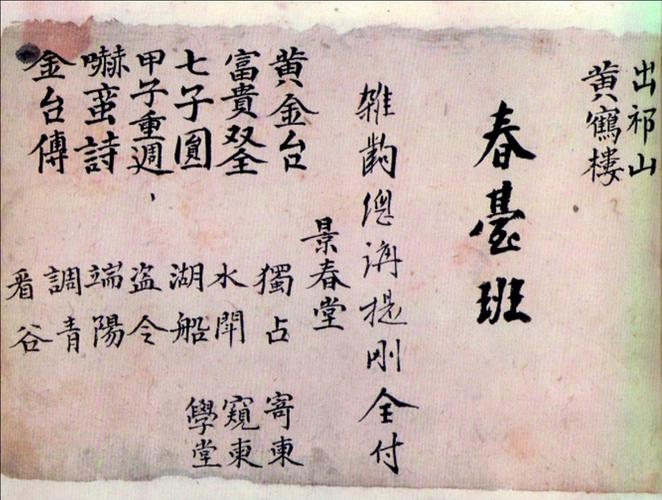 出祁山
黄鶴樓
春臺班
雜齣總講提剛全付
景春堂
黄金台
富貴双全
七子圓
甲子重週、
嚇蛮詩
金台傳
獨占
水閗
湖船
盗令
端陽
調青
看谷
寄東
窺東
學堂